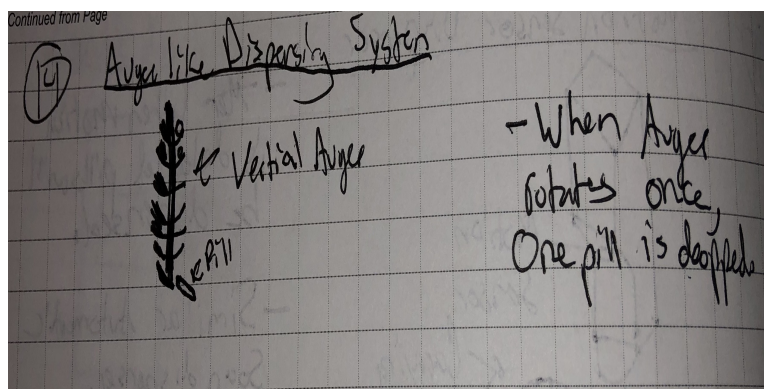 Continued from Page
14 Auger like Dispensing System
← Vertical Auger
← Pill
- When Auger
rotates once,
One pill is dropped.